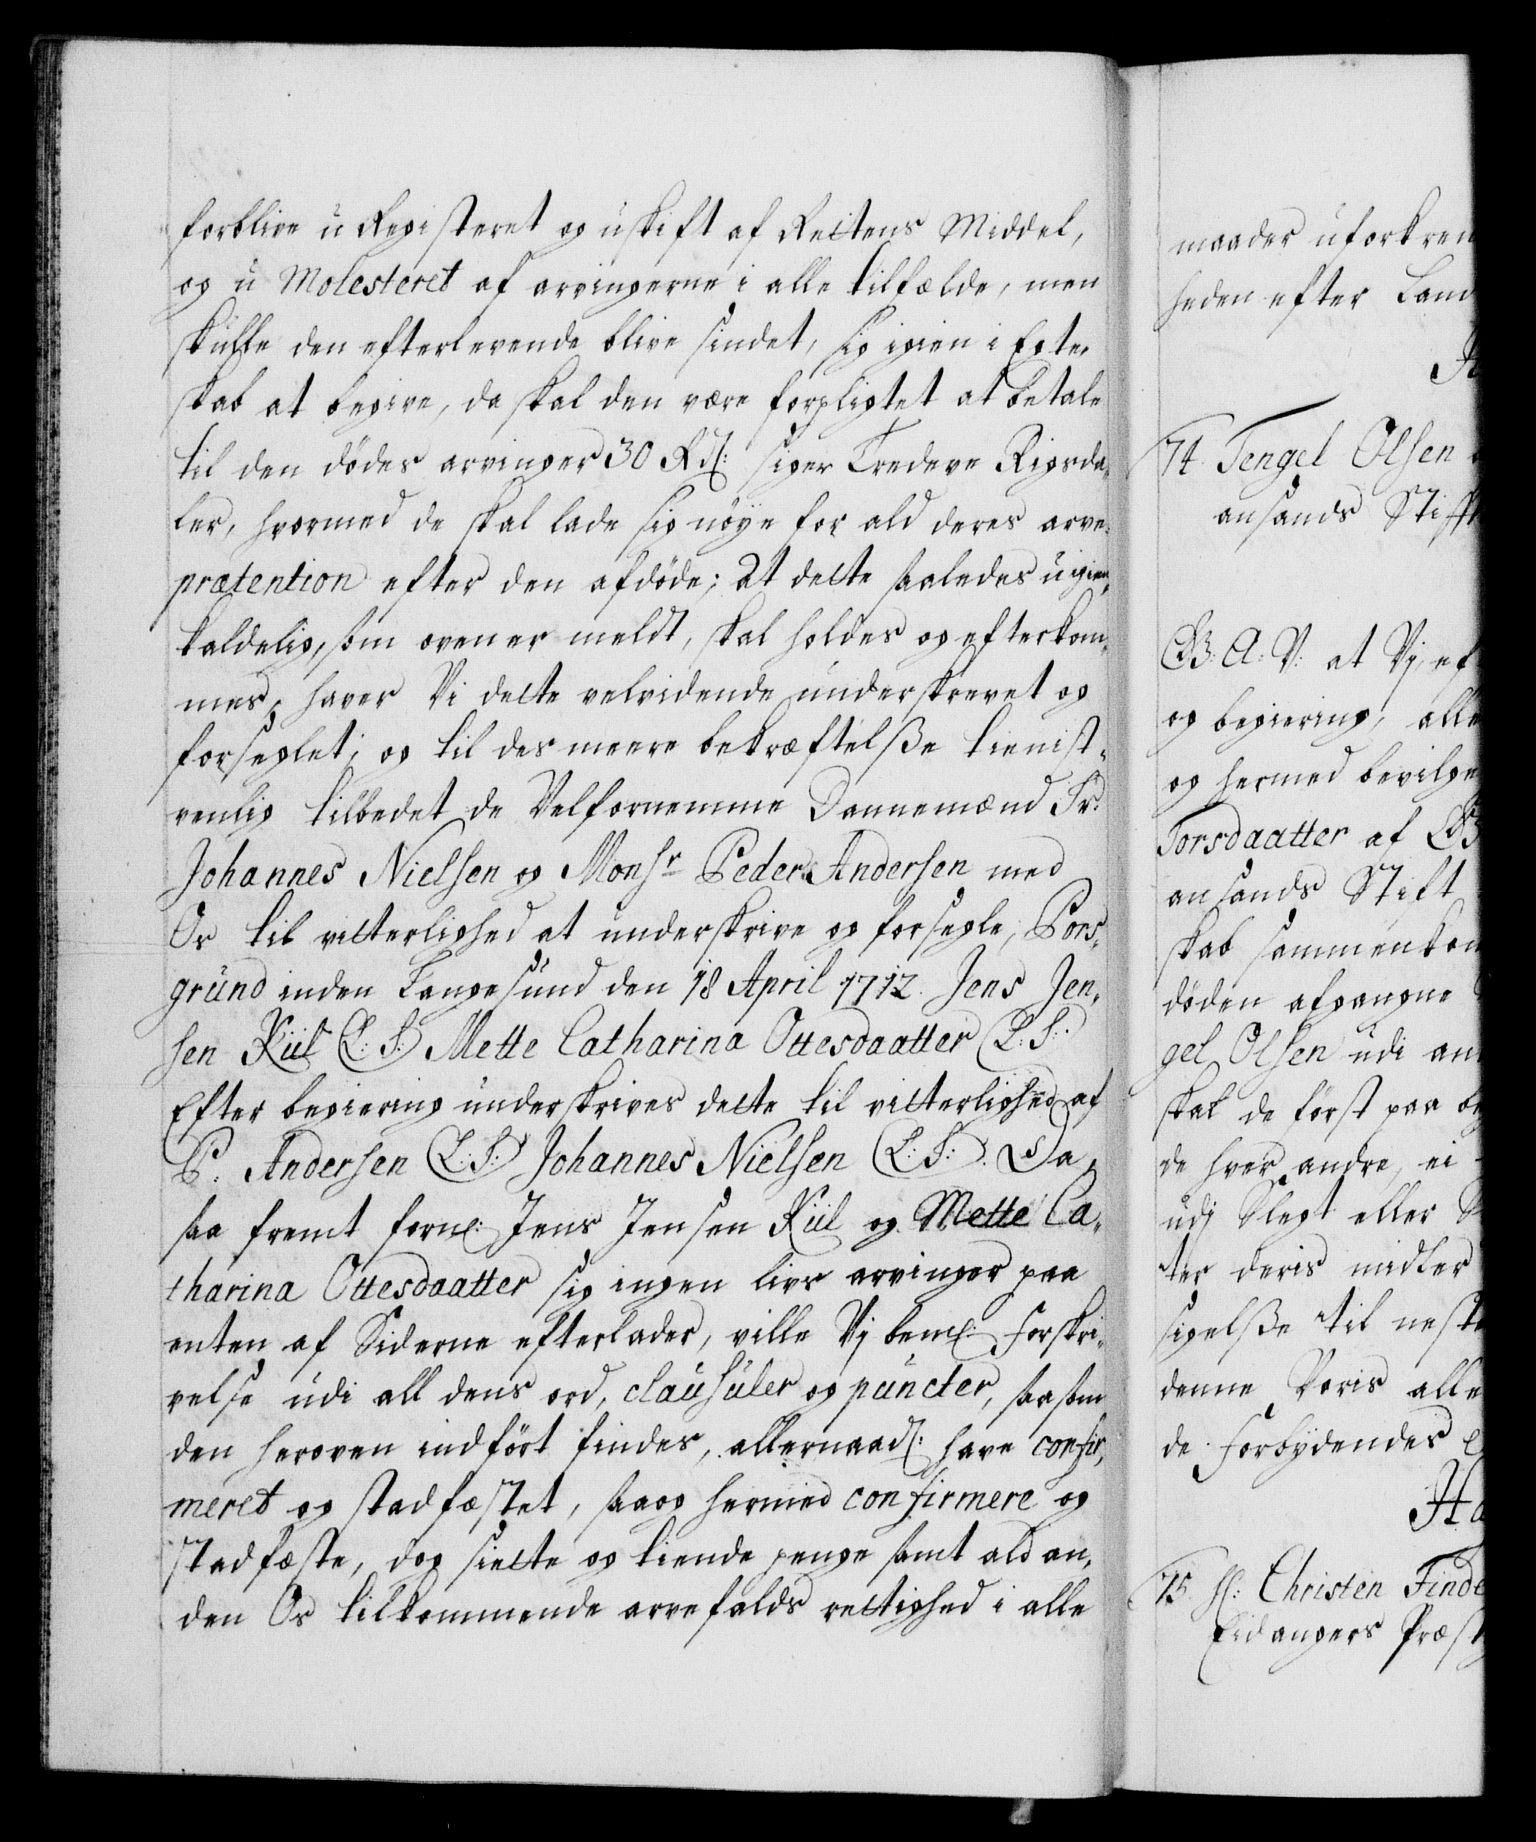 forblive u Registeret og uskift af Rettens Middel,
og u Molesteret af arvingerne i alle tilfælde, men
skulle den efterlevende blive sindet, sig igien i Egte,
skab at begive, da skal den være forpligtet at betale
til den dödes arvinger 30 Rd: siger Tredeve Rigsda,
ler, hvormed de skal lade sig nöye for ald deres arve,
prætention efter den afdöde; At dette saaledes uigien,
kaldelig, som oven er meldt, skal holdes og efterkom,
mes, haver Vi dette velvidende underskrevet og
forseglet; og til des meere bekræftelsse tienist,
venlig tilbedet de Velfornemme Dannemænd Sr
Johannes Nielsen og Monsr Peder Andersen med
Os til vitterlighed at underskrive og forsegle, Pors,
grund inden Langesund den 18 April 1712. Jens Jen,
sen Kiil (L: S:) Mette Catharina Ottesdaatter (L: S:)
Efter begiering underskrives dette til vitterlighed af
P: Andersen (L: S:) Johannes Nielsen (L: S:). Da,
saa fremt forne: Jens Jensen Kiil og Mette Ca,
tharina Ottesdaatter sig ingen livs arvinger paa
enten af Siderne efterlader, ville Vj bemte: forskri,
velse udi all dens ord, clausuler og puncter, saasom
den heroven indfört findes, allernaad: have confir,
meret og stadfæstet, saa og hermed confirmere og
stadfæste, dog siette og tiende penge samt ald an,
den Os tilkommende arvefalds rettighed i alle
maader uforkren
heden efter Land
74. Tengel Olsen
ansands Stifft
G: A: V: at Vj, ef
og begiering, alle
og hermed bevilge
Torsdaatter af
ansands Stift
skab sammenkom
döden afgangne
gel Olsen udi an
skal de först paa
de hver andre, ei
udj Slegt eller S
ter deris midler
sigelsse til neste
denne Voris alle
de Forbydendes
Ha
75. H: Christen Finde
Eidangers Præst